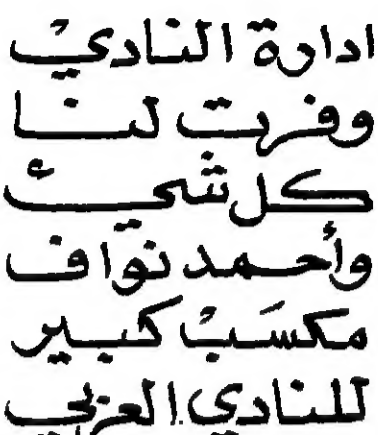 ادارة النادي
وفرت لنا
كل شئ
وأحمد نواف
مكسب كبير
للنادي العربي